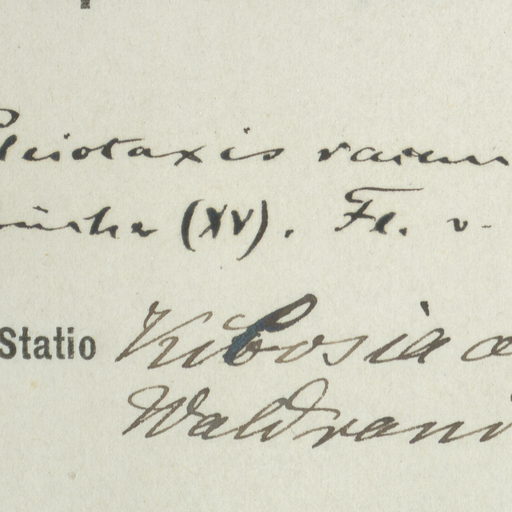 Pleiotaxis racem
(XV). Fl. v.
Statio Kibosia
Waldrand